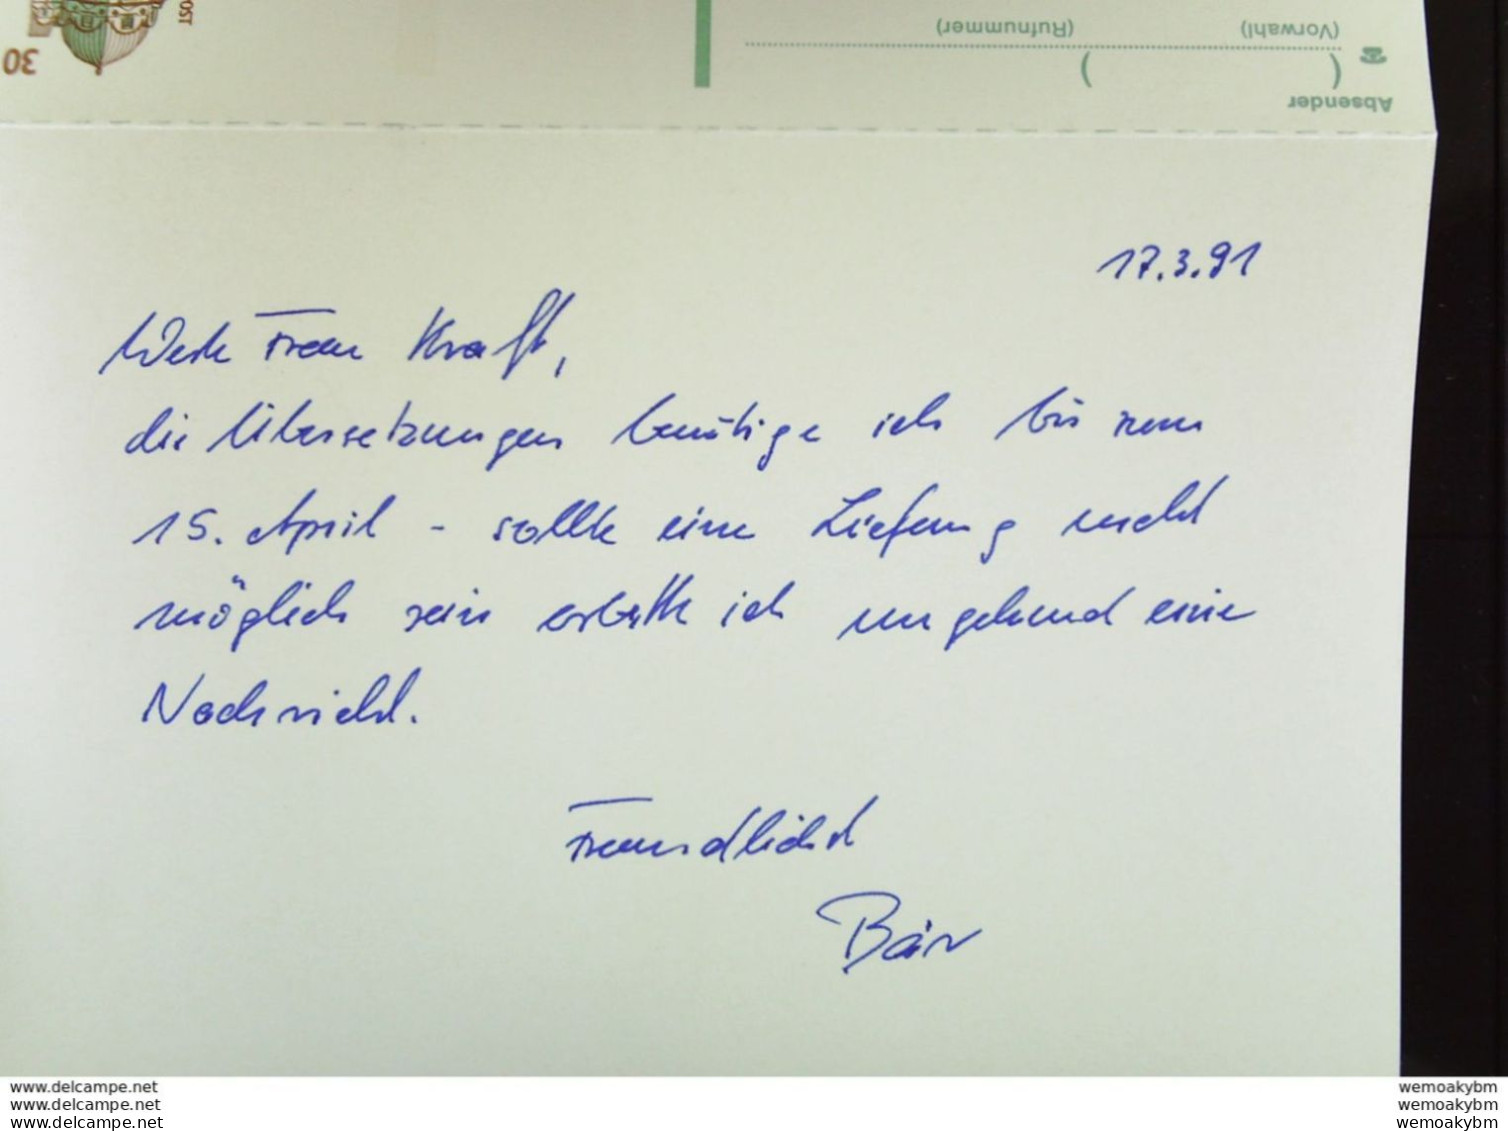 30
POST
(Rufnummer)
(Vorwahl)
(
)
Absender
17.3.91
Werte Frau Kraft,
die Übersetzungen benötige ich bis zum
15. April - sollte eine Lieferung nicht
möglich sein erbitte ich umgehend eine
Nachricht.
Freundlichst
Bär
www.delcampe.net
www.delcampe.net
www.delcampe.net
wemoakybm
wemoakybm
wemoakybm